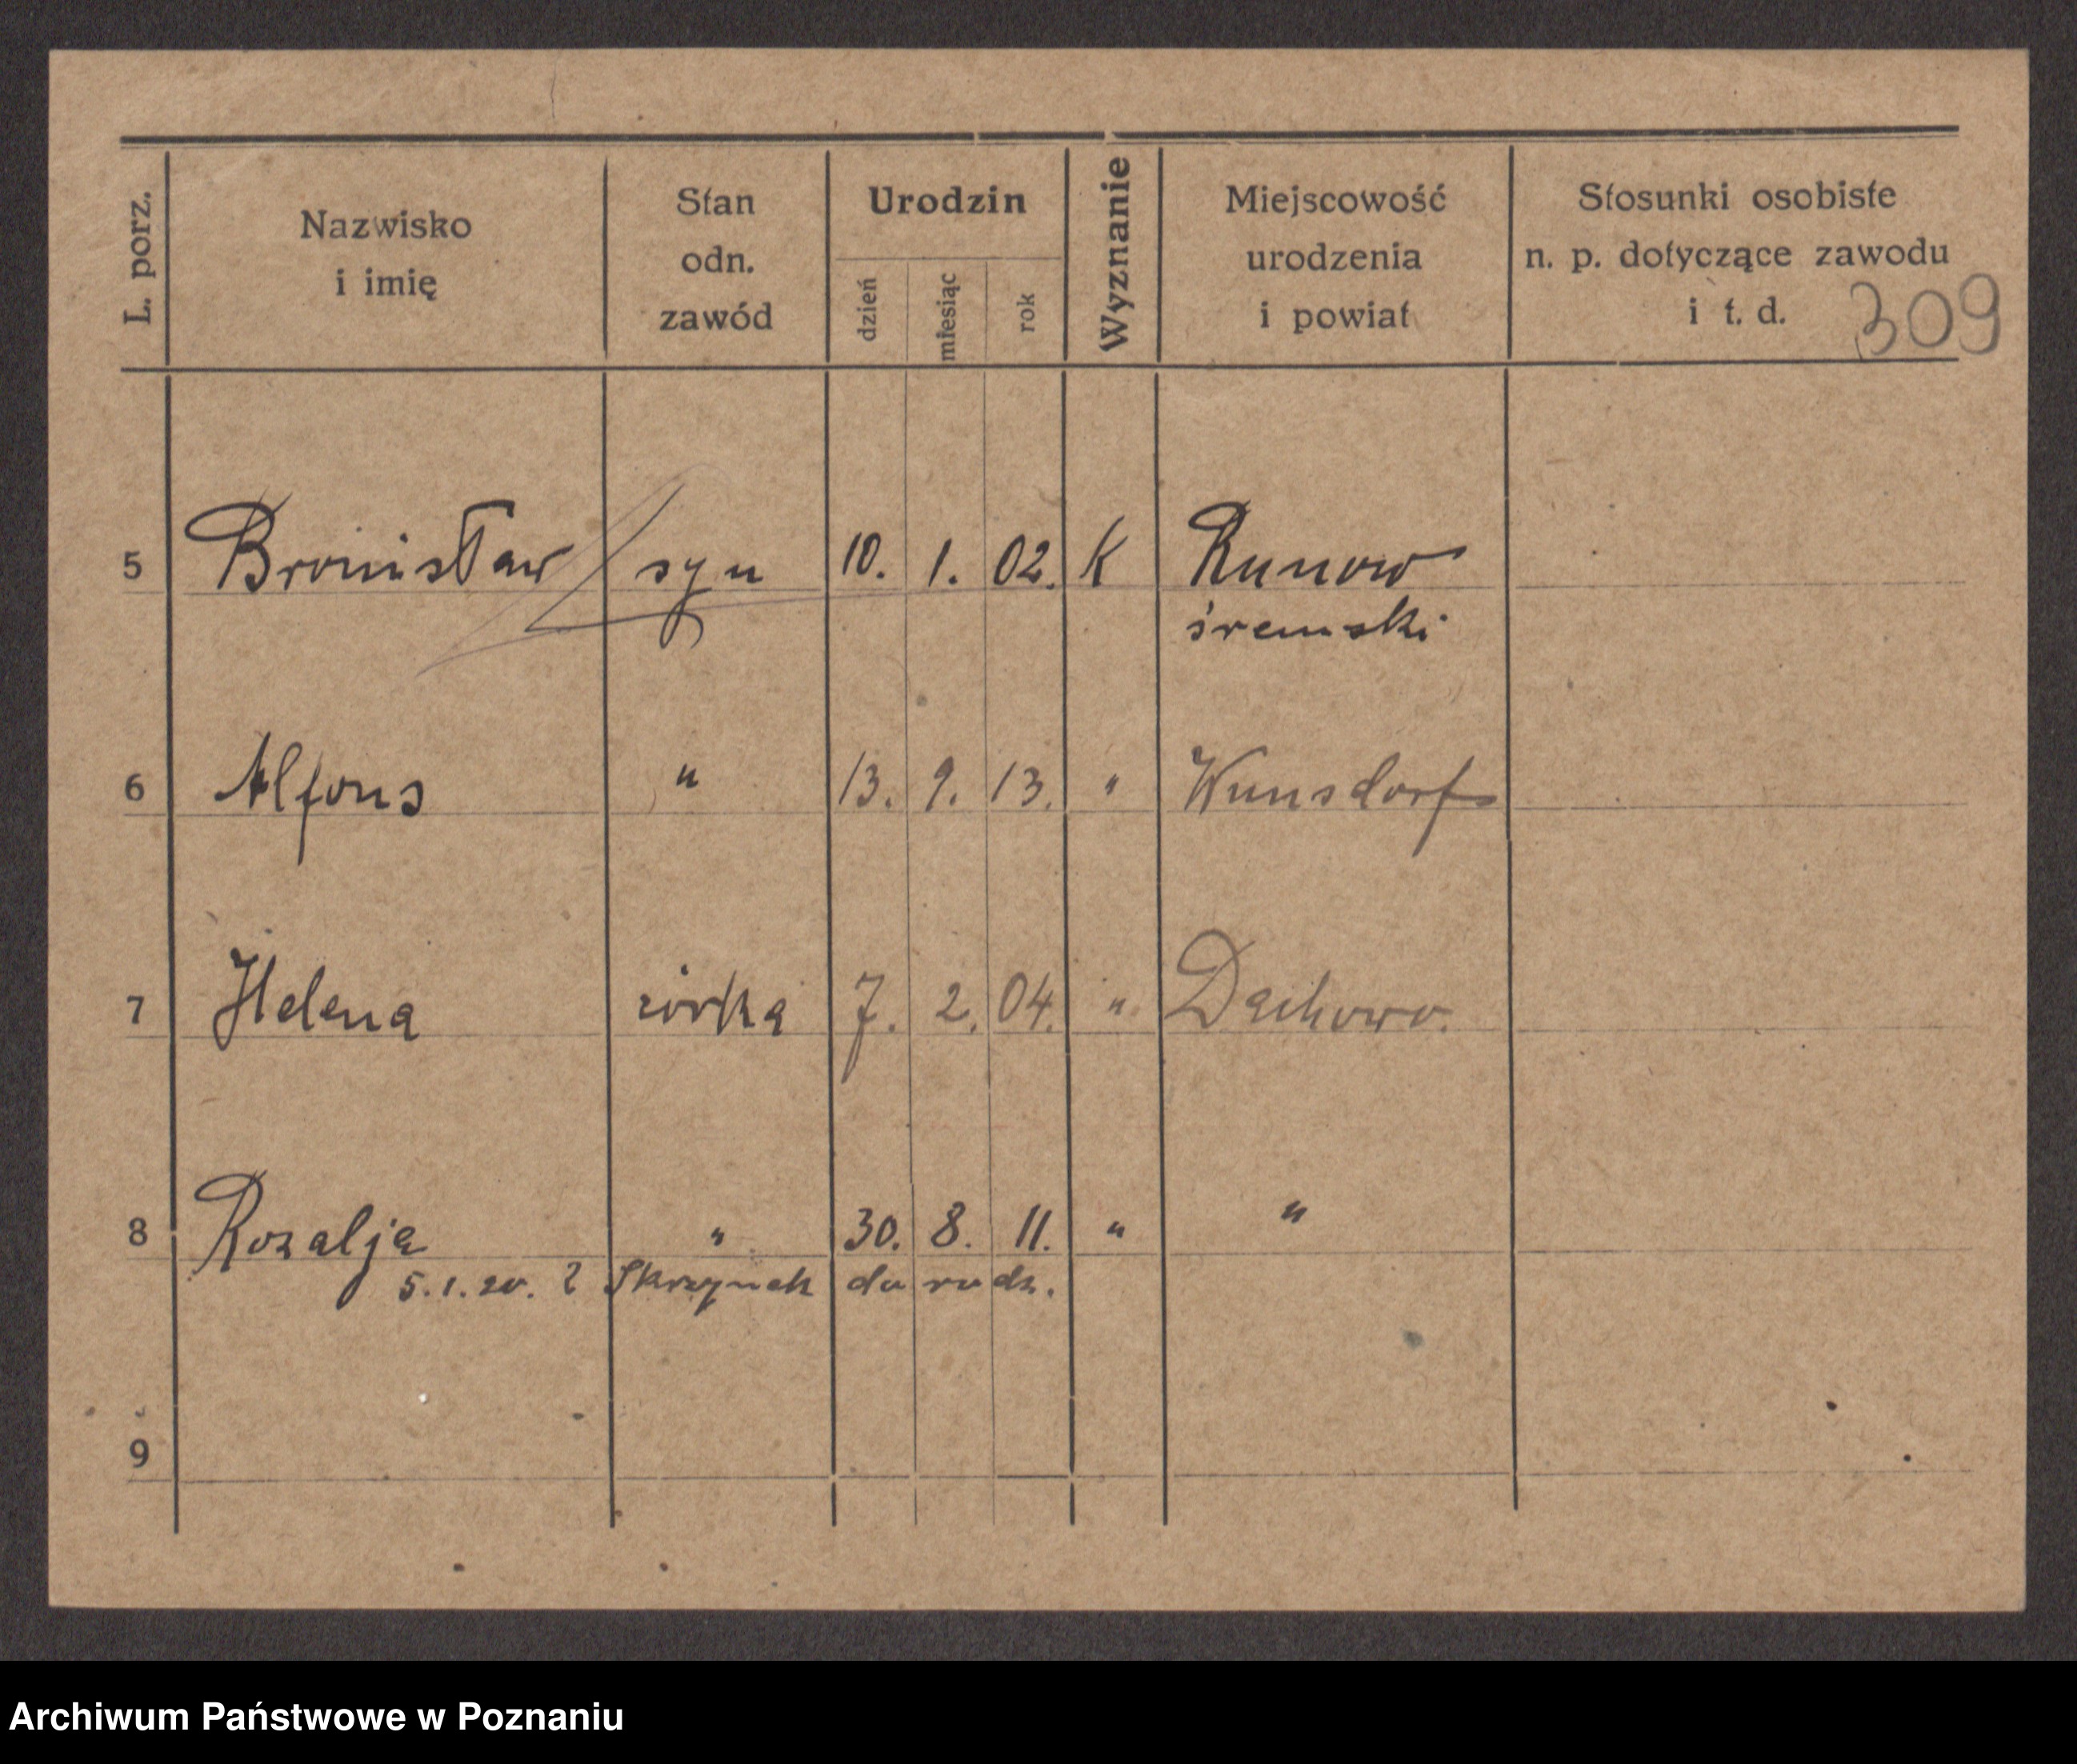 L. porz.
Nazwisko
i imię
Stan
odn.
zawód
Urodzin
dzień
miesiąc
rok
Wyznanie
Miejscowość
urodzenia
i powiat
Stosunki osobiste
n. p. dotyczące zawodu
i t. d.
309
5 Bronisław syn 10. 1. 02. K Runow
śremski
6 Alfons " 13. 9. 13. " Wunsdorf
7 Helena córka 7. 2. 04. " Dachowo.
8 Rozalja " 30. 8. 11. " "
5.1.20. Skrzynek do rodz.
9
Archiwum Państwowe w Poznaniu